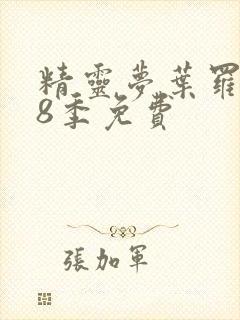 精靈夢葉羅
8季免費
張加軍